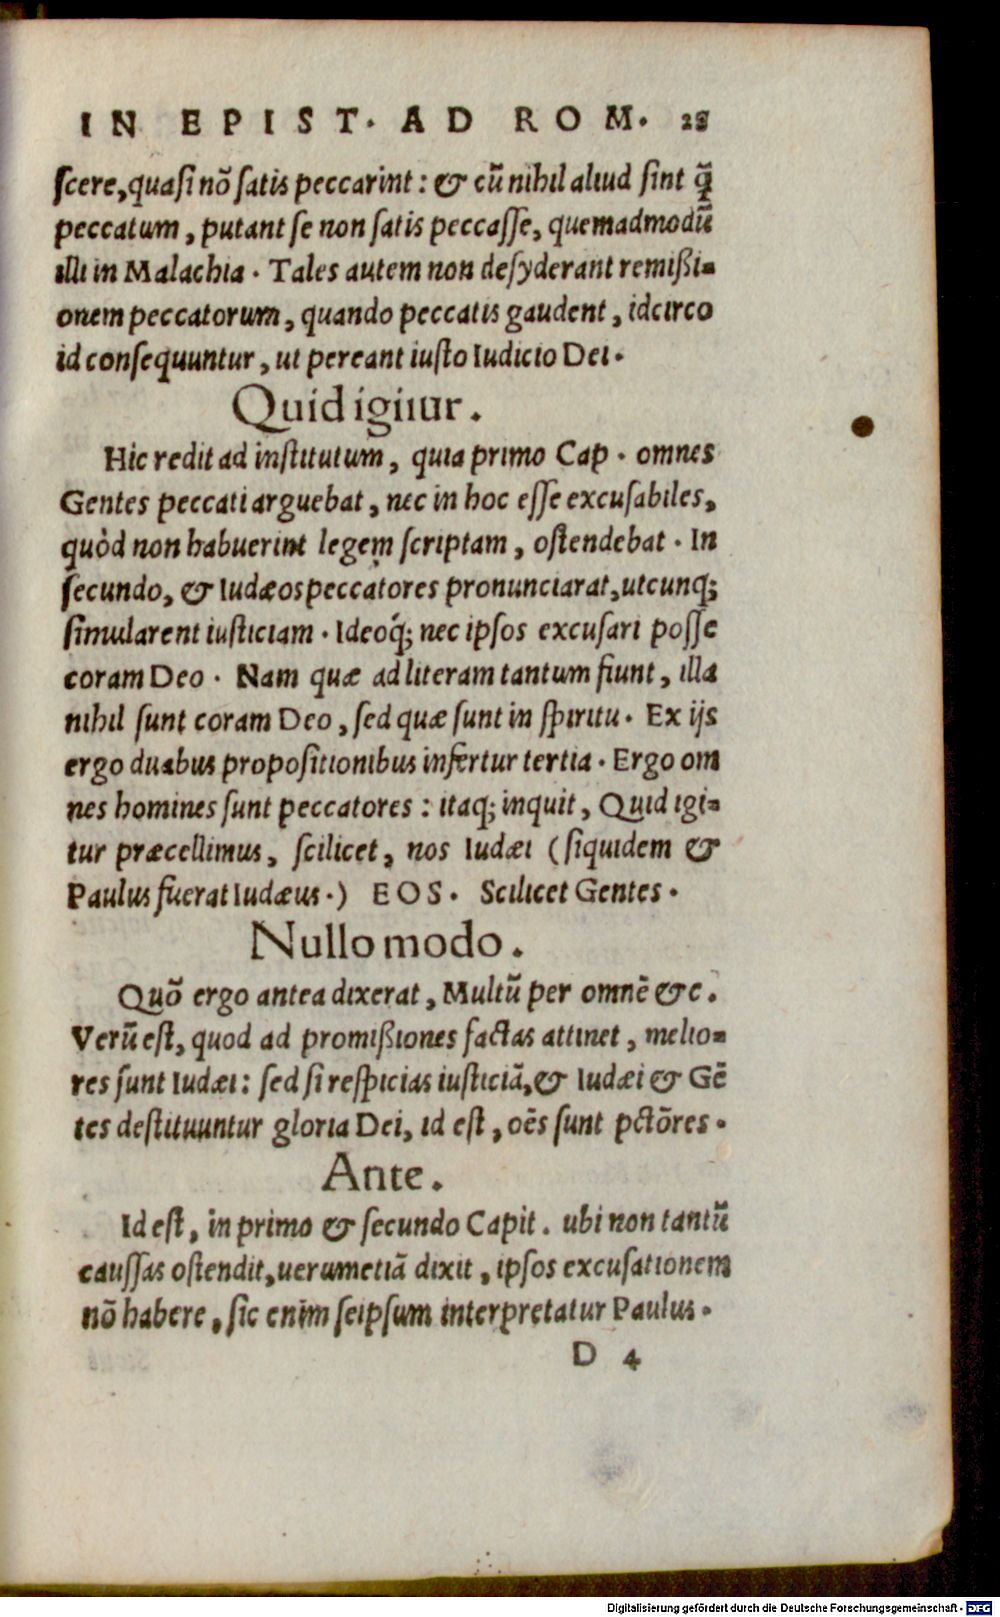 IN EPIST. AD ROM. 28
ſcere, quaſi nõ ſatis peccarint: & cũ nihil aliud ſint q̃
peccatum, putant ſe non ſatis peccaſſe, quemadmodũ
illi in Malachia. Tales autem non deſyderant remißi-
onem peccatorum, quando peccatis gaudent, idcirco
id conſequuntur, ut pereant iuſto Iudicio Dei.
Quid igitur.
Hic redit ad inſtitutum, quia primo Cap. omnes
Gentes peccati arguebat, nec in hoc eſſe excuſabiles,
quòd non habuerint legem ſcriptam, oſtendebat. In
ſecundo, & Iudæos peccatores pronunciarat, utcunq;
ſimularent iuſticiam. Ideoq́; nec ipſos excuſari poſſe
coram Deo. Nam quæ ad literam tantum fiunt, illa
nihil ſunt coram Deo, ſed quæ ſunt in ſpiritu. Ex ijs
ergo duabus propoſitionibus infertur tertia. Ergo om
nes homines ſunt peccatores: itaq; inquit, Quid igi-
tur præcellimus, ſcilicet, nos Iudæi (ſiquidem &
Paulus fuerat Iudæus.) EOS. Scilicet Gentes.
Nullo modo.
Quõ ergo antea dixerat, Multũ per omnẽ &c.
Verũ eſt, quod ad promißiones factas attinet, melio-
res ſunt Iudæi: ſed ſi reſpicias iuſticiã, & Iudæi & Gẽ
tes deſtituuntur gloria Dei, id eſt, oẽs ſunt pctõres.
Ante.
Id eſt, in primo & ſecundo Capit. ubi non tantũ
cauſſas oſtendit, uerumetiã dixit, ipſos excuſationem
nõ habere, ſic enim ſeipſum interpretatur Paulus.
D 4
Digitalisierung gefördert durch die Deutsche Forschungsgemeinschaft - DFG